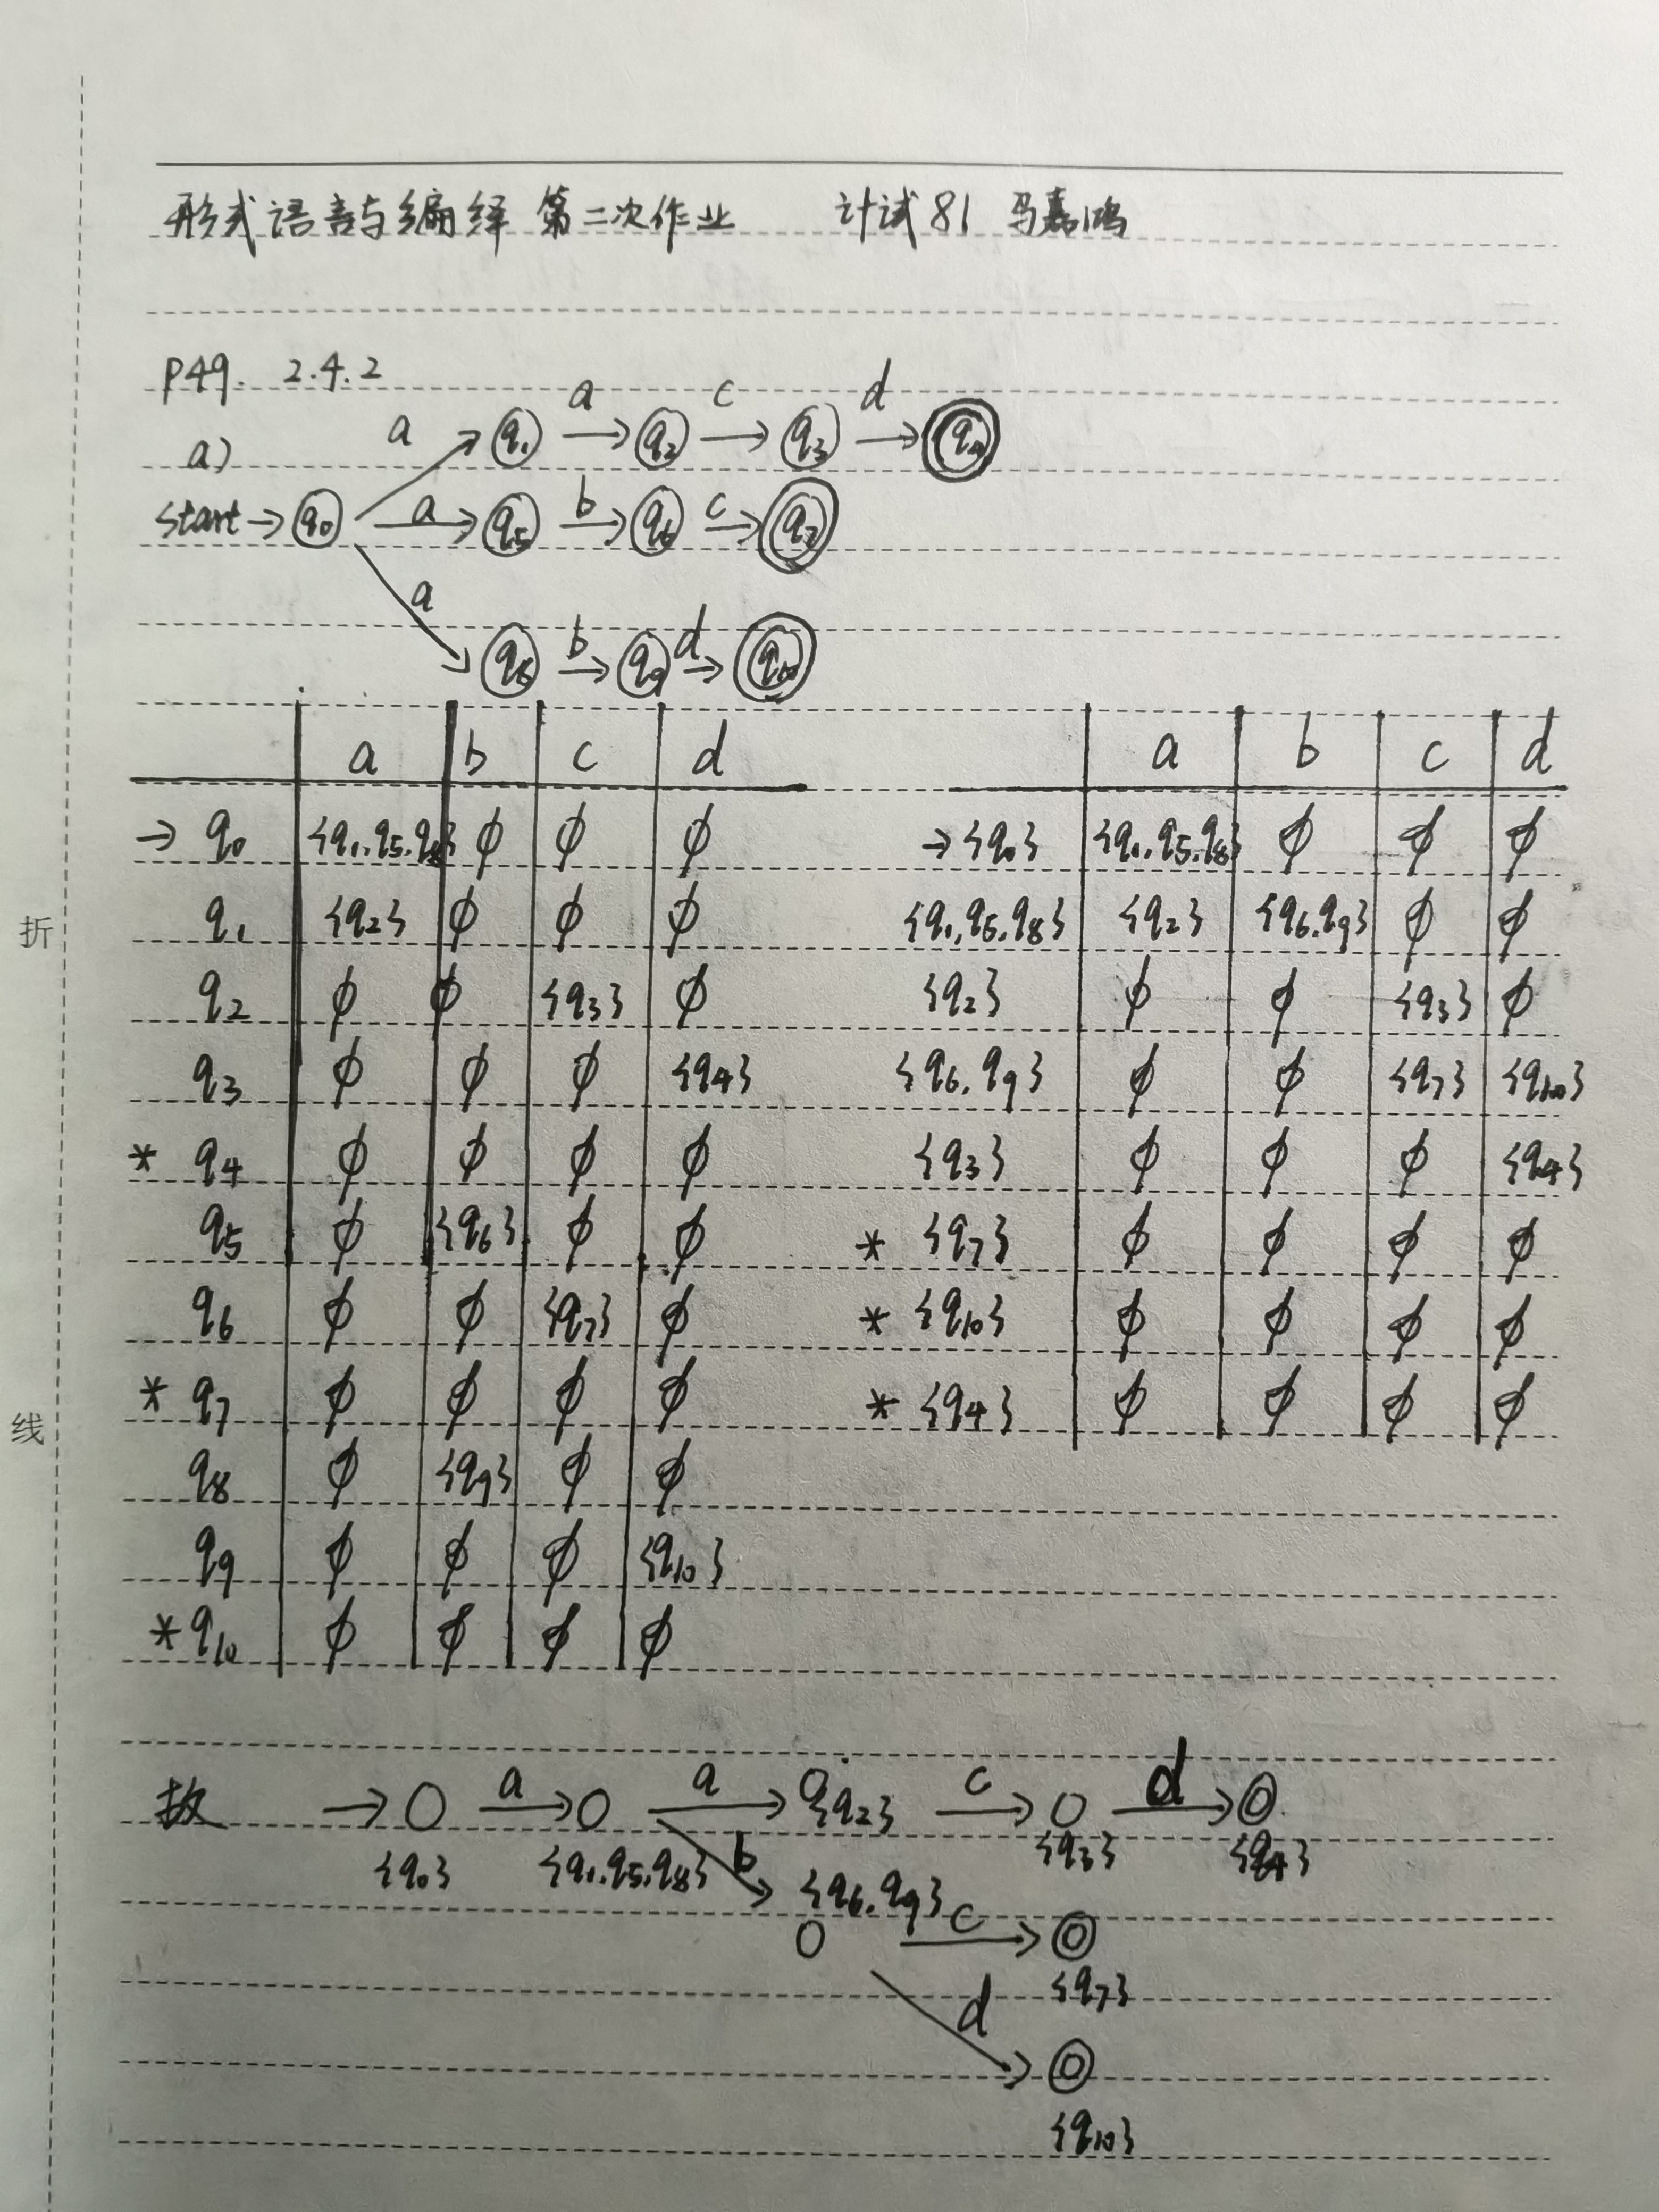 形式语言与编绎 第二次作业 计试81 马嘉鸿
P49. 2.4.2
a)
a a c d
q1 q2 q3 q4
start → q0 a q5 b q6 c q7
a q8 b q9 d q10
a b c d
→ q0 {q1.q5.q8} ϕ ϕ ϕ
q1 {q2} ϕ ϕ ϕ
q2 ϕ ϕ {q3} ϕ
q3 ϕ ϕ ϕ {q4}
* q4 ϕ ϕ ϕ ϕ
q5 ϕ {q6} ϕ ϕ
q6 ϕ ϕ {q7} ϕ
* q7 ϕ ϕ ϕ ϕ
q8 ϕ {q9} ϕ ϕ
q9 ϕ ϕ ϕ {q10}
* q10 ϕ ϕ ϕ ϕ
a b c d
→ {q0} {q1.q5.q8} ϕ ϕ ϕ
{q1,q5.q8} {q2} {q6.q9} ϕ ϕ
{q2} ϕ ϕ {q3} ϕ
{q6.q9} ϕ ϕ {q7} {q10}
{q3} ϕ ϕ ϕ {q4}
* {q7} ϕ ϕ ϕ ϕ
* {q10} ϕ ϕ ϕ ϕ
* {q4} ϕ ϕ ϕ ϕ
故 a a c d
{q0} {q1.q5.q8} {q2} {q3} {q4}
b {q6.q9} c
{q7}
d
{q10}
折
线